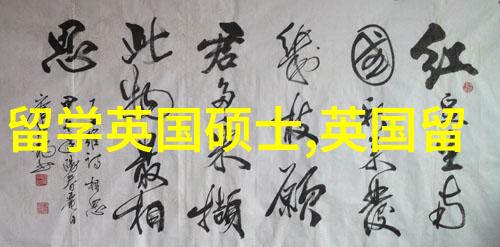 留学英国硕士,英国留
红豆生南
國春来發
幾枝願
君多采撷
此物最相
思